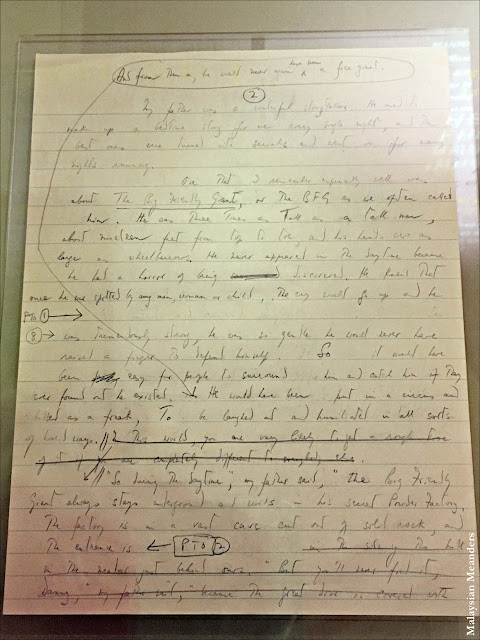 And from then on, he would never again have been a free giant.
(2)
My father was a wonderful storyteller. He used to
make up a bedtime story for me every single night, and the
best ones were turned into serials and went on for many
nights running.
One that I remember especially well was
about The Big Friendly Giant, or The BFG as we often called
him. He was Three Times as Tall as a tall man,
about nineteen feet from top to toe, and his hands were as
large as wheelbarrows. He never appeared in the daytime because
he had a horror of being discovered. He knew that
once he was spotted by any man, woman or child, The cry would go up and he
PTO (1) →
(8) → was tremendously strong, he was so gentle he would never have
raised a finger to defend himself. So it would have
been easy for people to surround him and catch him if they
ever found out he existed. He would have been put in a circus and
billed as a freak, To be laughed at and humiliated in all sorts
of ways. // In This world, you are very likely to get a rough time
of it if you are completely different to everybody else.
// "So during The daytime", my father said, "the Big Friendly
Giant always stays underground and works in his secret Powder Factory.
The factory is in a vast cave cut out of solid rock, and
The entrance is ← PTO (2) in the side of the hill
in the meadow just behind ours. "But you'll never find it,
Danny," my father said, "because The great door is covered with
Malaysian Meanders